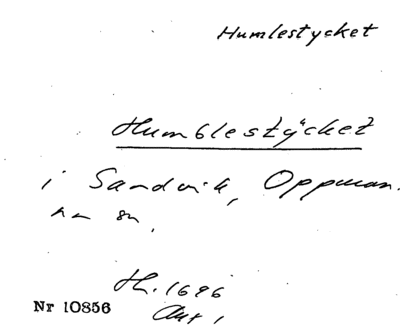 Humlestycket
Humblestÿcket
i Sandvik, Oppman.
na sn.
Th. 1696
Akt 1
Nr 10856